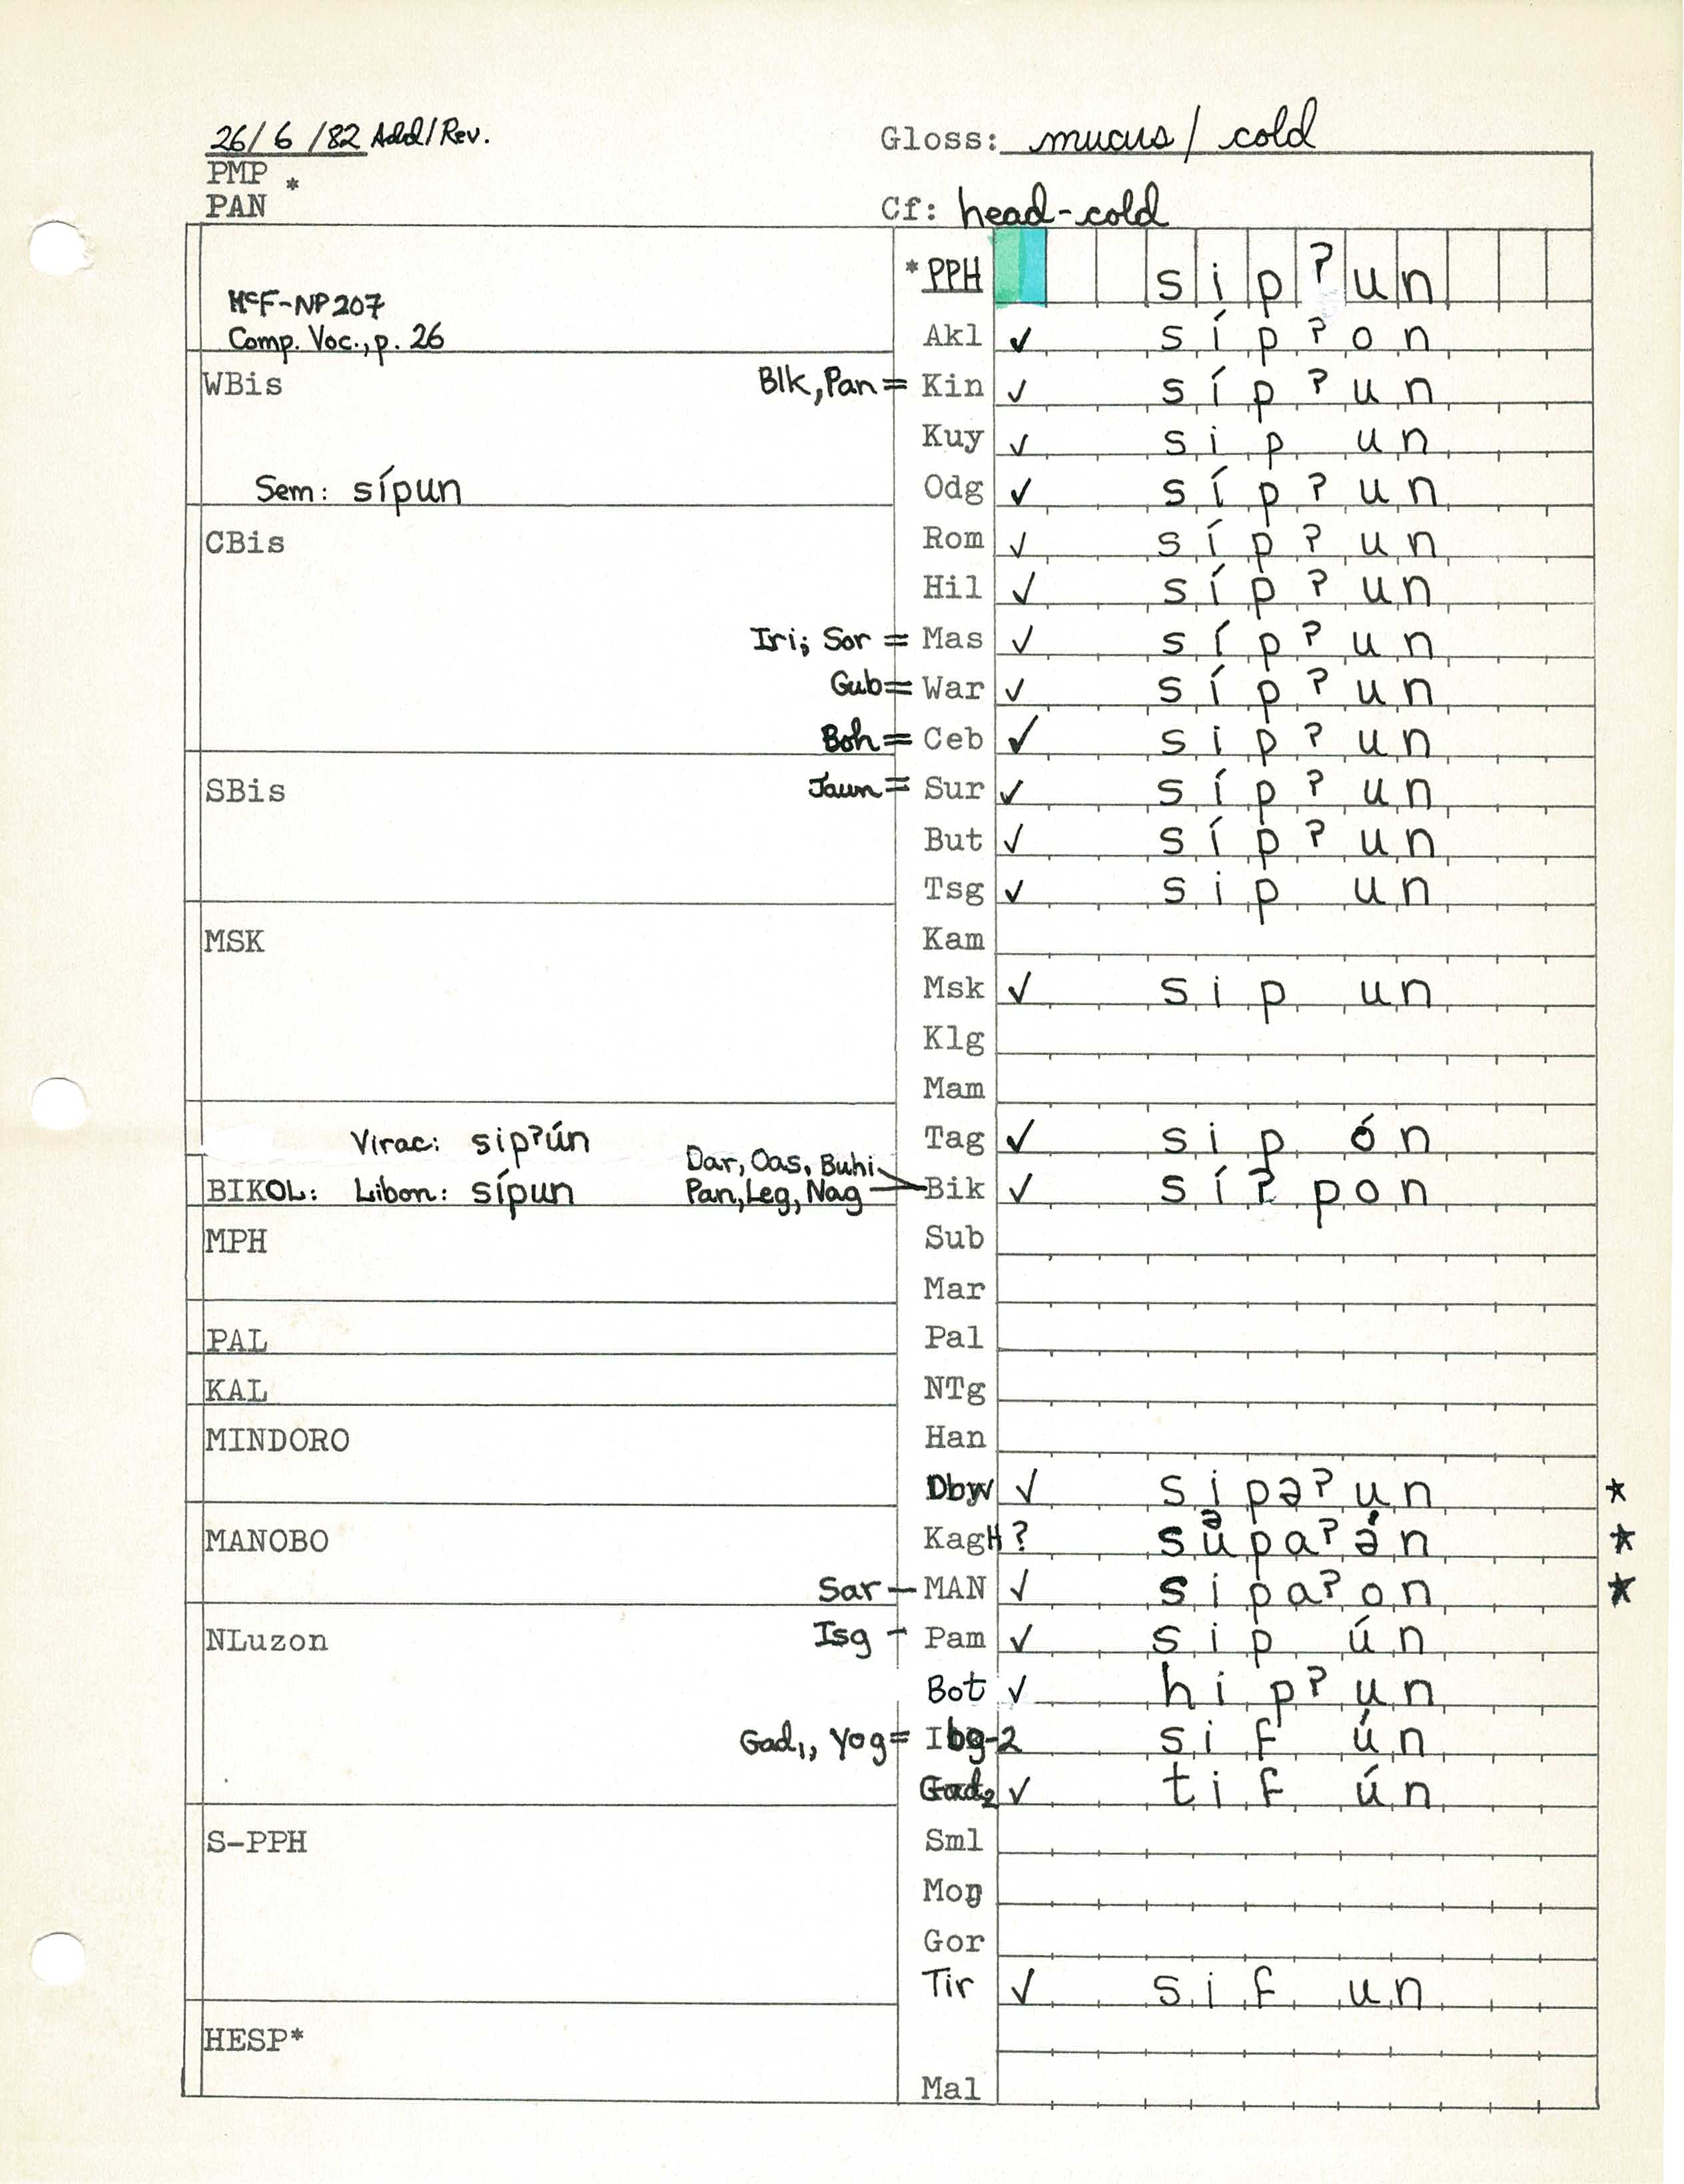 26/6/82 Add/Rev.
Gloss: mucus/cold
PMP *
PAN
Cf: head-cold
*PPH sipʔun
McF-NP 207
Comp. Voc., p. 26
Akl ✓ sípʔon
WBis
Blk, Pan = Kin ✓ sípʔun
Kuy ✓ sipun
Sem: sípun
Odg ✓ sípʔun
CBis
Rom ✓ sípʔun
Hil ✓ sípʔun
Iri; Sor = Mas ✓ sípʔun
Gub = War ✓ sípʔun
Boh = Ceb ✓ sipʔun
SBis
Jaun = Sur ✓ sípʔun
But ✓ sípʔun
Tsg ✓ sipun
MSK
Kam
Msk ✓ sipun
Klg
Mam
Virac: sipʔún
Tag ✓ sipón
Dar, Oas, Buhi
BIKOL: Libon: sípun
Pan, Leg, Nag
Bik ✓ síʔpon
MPH
Sub
Mar
PAL
Pal
KAL
NTg
MINDORO
Han
Dbw ✓ sipəʔun *
MANOBO
KagH ? supaʔən *
Sar – MAN ✓ sipaʔon *
NLuzon
Isg – Pam ✓ sipún
Bot ✓ hipʔun
Gad₁, Yog = Ibg-2 sifún
Gad₂ ✓ tifún
S-PPH
Sml
Moŋ
Gor
Tir ✓ sifun
HESP*
Mal